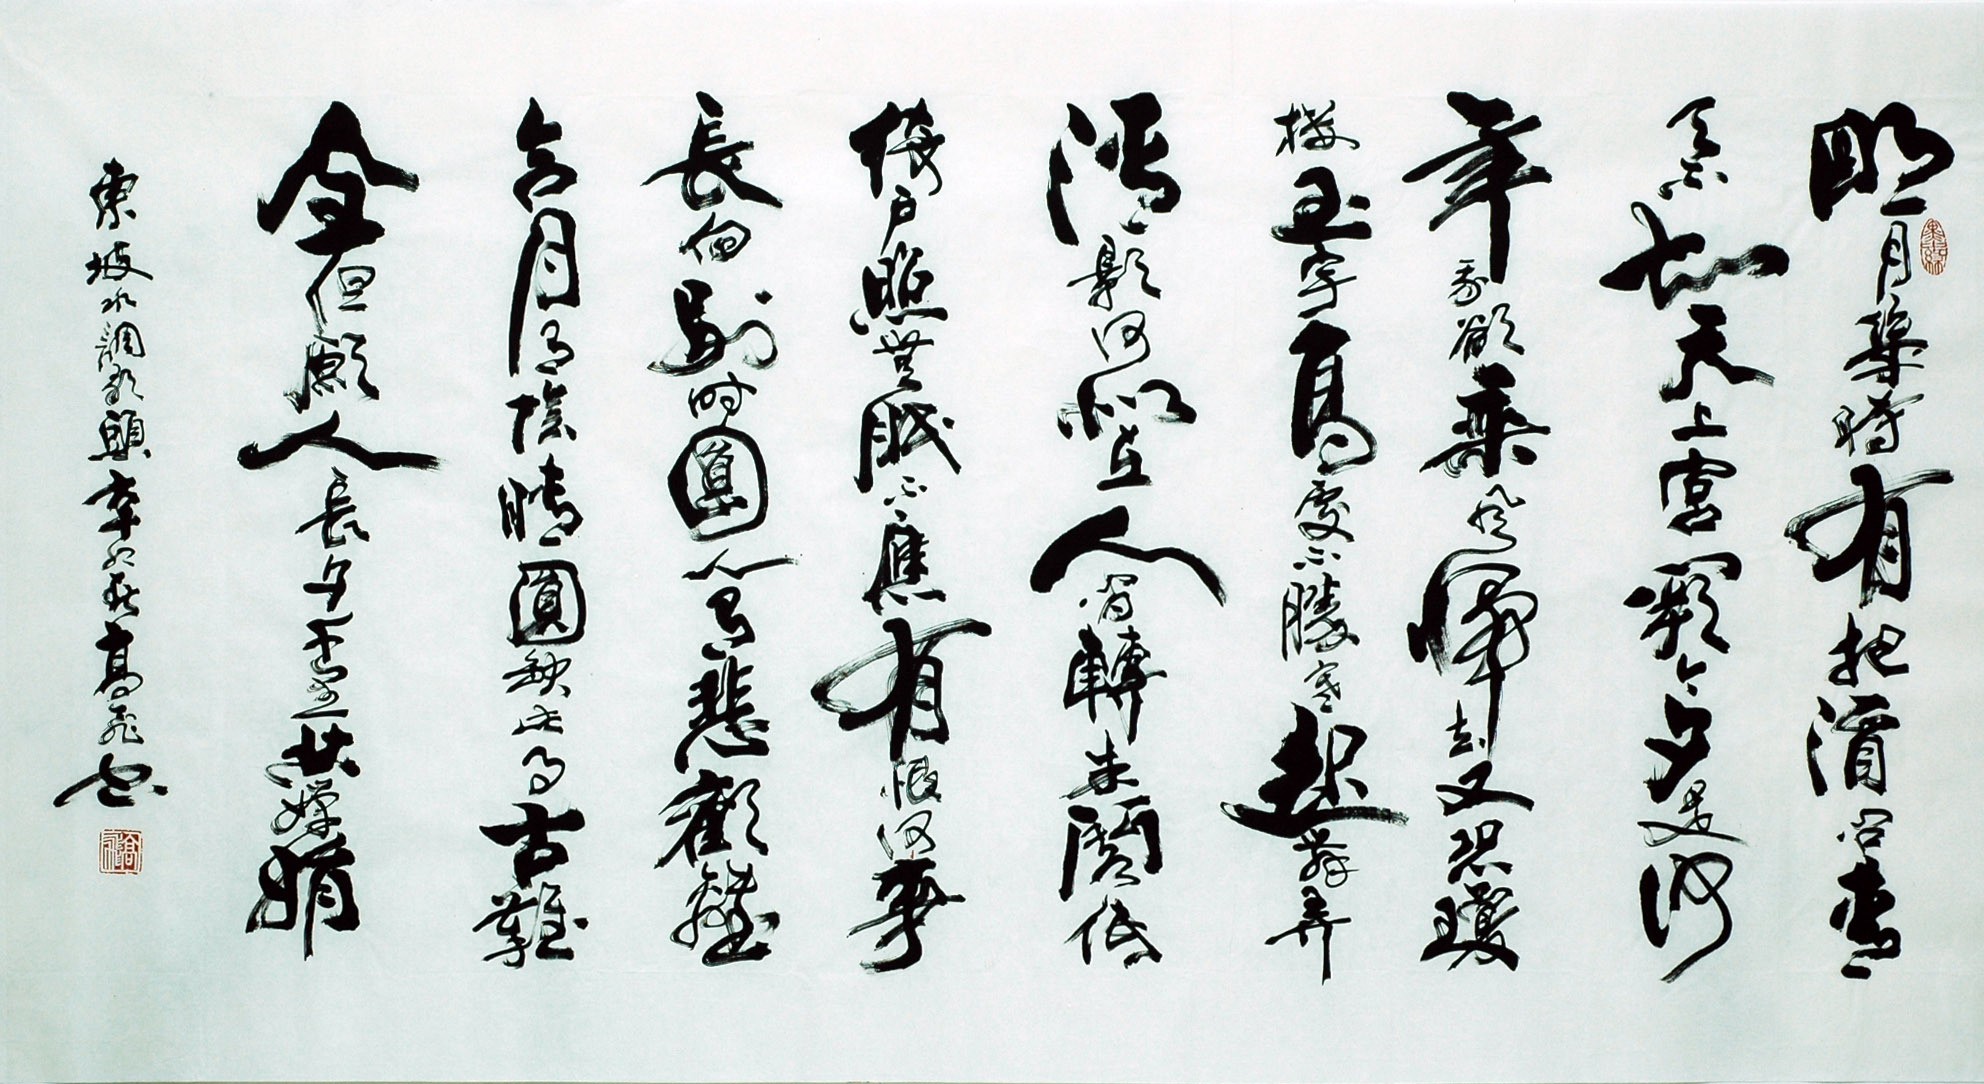 明月幾時有把酒問青
天不知天上宮闕今夕是何
年我欲乘風歸去又恐瓊
樓玉宇高處不勝寒起舞弄
清影何似在人間轉朱閣低
綺戶照無眠不應有恨何事
長向別時圓人有悲歡離
合月有陰晴圓缺此事古難
全但願人長久千里共嬋娟
東坡水調歌頭辛卯秋高飛書